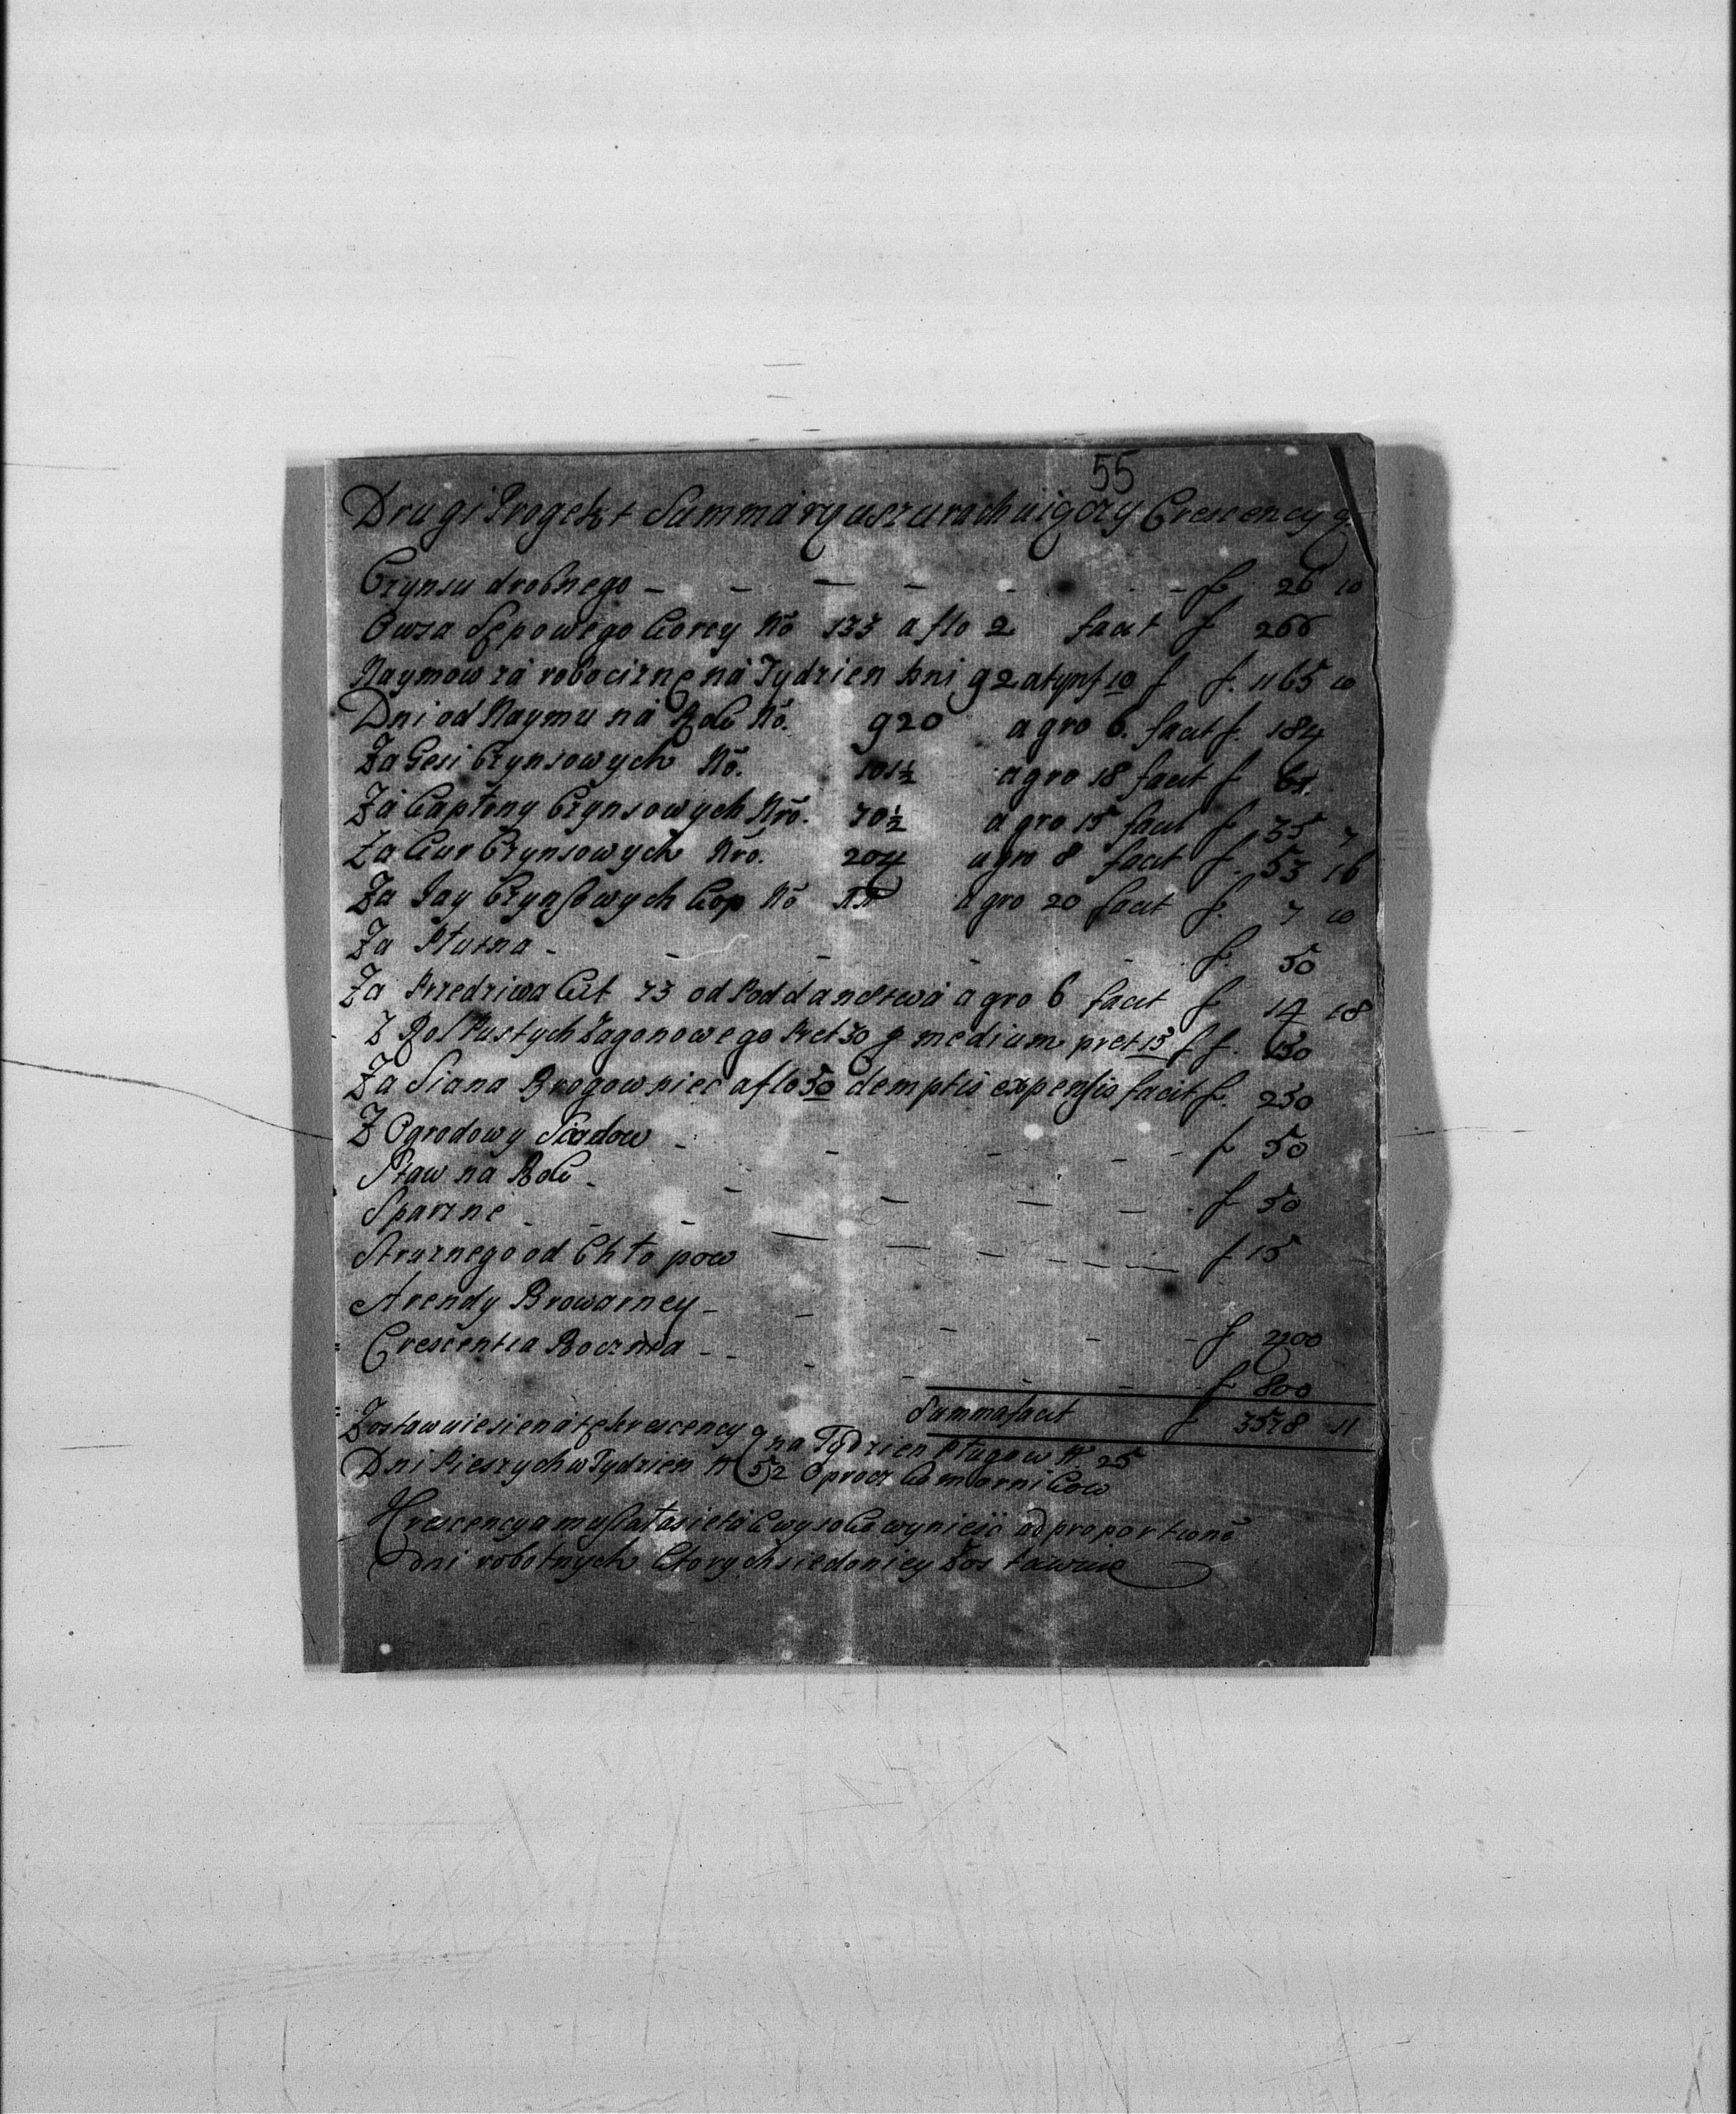 55
Drugi Progekt Summáryuszu rachuiączy Crescencyą
Czynsu drobnego - - - - - f. 26 10
Owsa Sępowego Korcy No 133 a flo 2 facit f 266
Naymow zá robociznę ná Tydzien dni 92 a tynf 10 f f. 1165 10
Dni od Naymu ná Rok No. 920 a gro 6. facit f. 184
Za Gesi Czynsowych No. 101½ a gro 18 facit f 61.
Zá Kapłony Czynsowych Nro. 70½ a gro 15 facit f 35 7
Zá Kur Czynsowych Nro. 204 a gro 8 facit f. 53 16
Za Jay Czynszowych Kop No a gro 20 facit f. 7 10
Za - - - - f. 50
Zá Przedziwa 73 od Poddanstwá a gro 6 facit f 14 18
Z Rol Pustych Zagonowego Pret 30 medium pret 15 f f. 150
Zá Siana Brogow a flo 50 demptis expensis facit f. 250
Z Ogrodowy Sadow - - - - f 50
Staw ná Rok - - - - - f 50
Sparzne - - -
Struznego od Chłopow - - - - f 15
Arendy Browarney - -
Crescentia Roczna - - - - f 400
f 800
Summa facit f 3578 11
Zostawuie sie ná tę krescencyą na Tydzien Pługow N. 25
Dni Pieszych w Tydzien N 52 Oprocz Komornikow
Krescencya musiała sie tá wysoko wynieść ad proportione
dni robotnych ktorych sie do niey Zostawuie